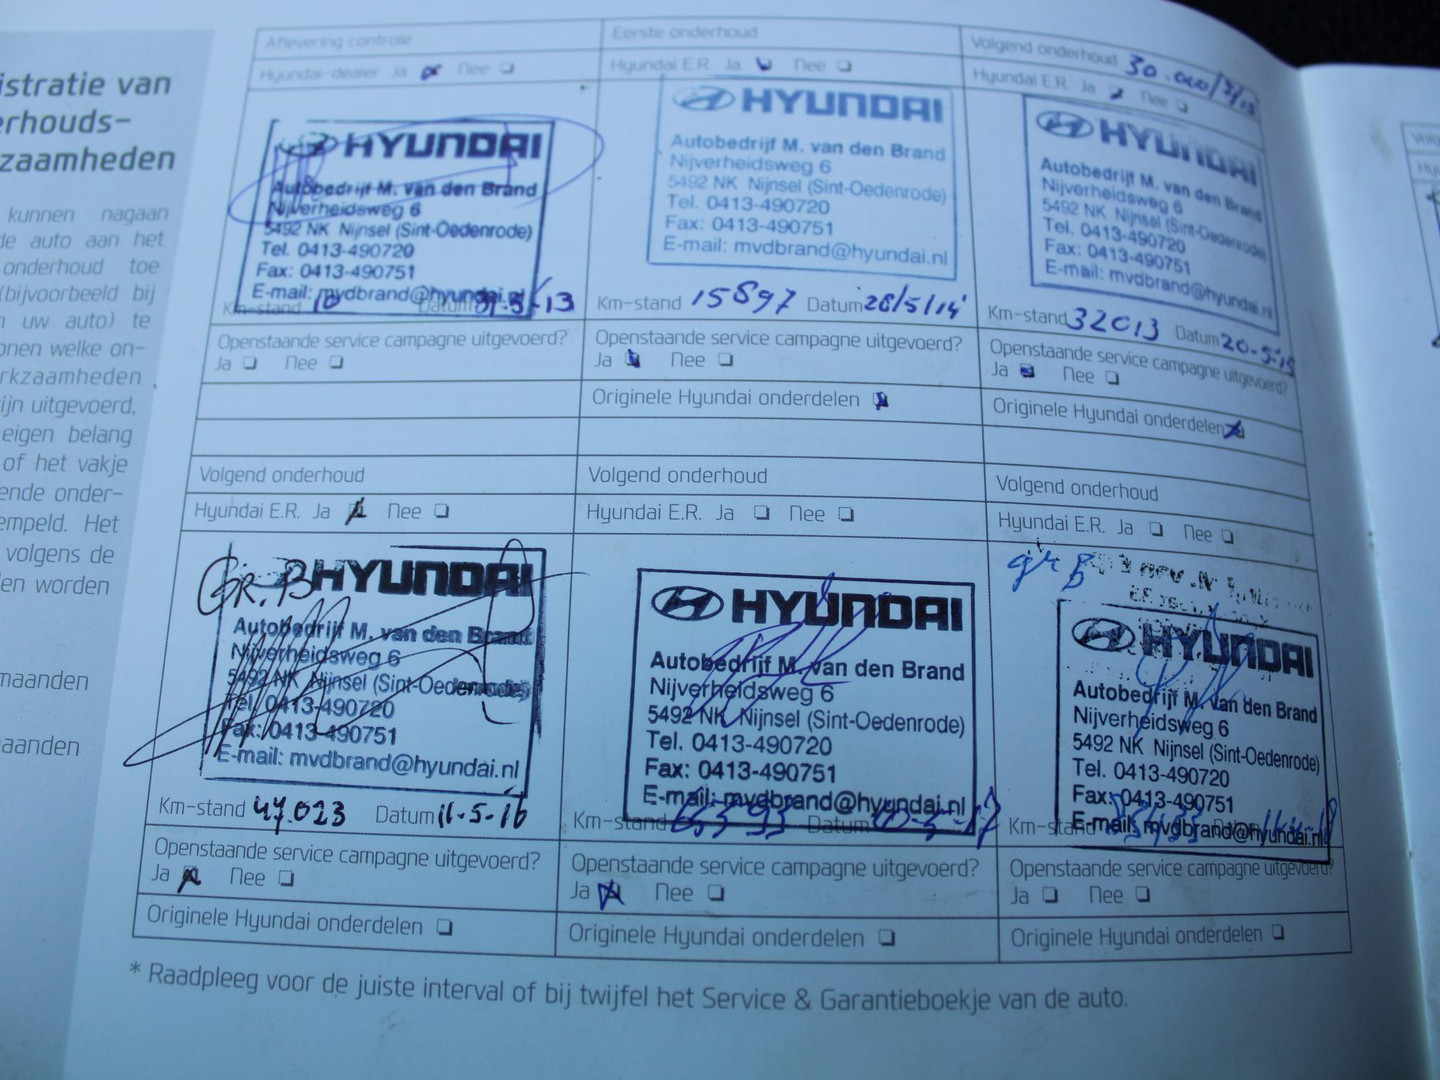 istratie van
erhouds-
kzaamheden
kunnen nagaan
de auto aan het
onderhoud toe
(bijvoorbeeld bij
n uw auto) te
onen welke on-
rkzaamheden
ijn uitgevoerd,
eigen belang
of het vakje
ende onder-
empeld. Het
volgens de
den worden
maanden
aanden
Aflevering controle
Hyundai-dealer Ja Nee
HYUNDAI
Autobedrijf M. van den Brand
Nijverheidsweg 6
5492 NK Nijnsel (Sint-Oedenrode)
Tel. 0413-490720
Fax: 0413-490751
E-mail: mvdbrand@hyundai.nl
Km-stand 10 Datum 31-5-13
Openstaande service campagne uitgevoerd?
Ja Nee
Eerste onderhoud
Hyundai E.R. Ja Nee
HYUNDAI
Autobedrijf M. van den Brand
Nijverheidsweg 6
5492 NK Nijnsel (Sint-Oedenrode)
Tel. 0413-490720
Fax: 0413-490751
E-mail: mvdbrand@hyundai.nl
Km-stand 15897 Datum 28/5/14
Openstaande service campagne uitgevoerd?
Ja Nee
Originele Hyundai onderdelen
Volgend onderhoud 30.000/
Hyundai E.R. Ja Nee
HYUNDAI
Autobedrijf M. van den Brand
Nijverheidsweg 6
5492 NK Nijnsel (Sint-Oedenrode)
Tel. 0413-490720
Fax: 0413-490751
E-mail: mvdbrand@hyundai.nl
Km-stand 32013 Datum 20-5-15
Openstaande service campagne uitgevoerd?
Ja Nee
Originele Hyundai onderdelen
Volgend onderhoud
Hyundai E.R. Ja Nee
GR. B
HYUNDAI
Autobedrijf M. van den Brand
Nijverheidsweg 6
5492 NK Nijnsel (Sint-Oedenrode)
Tel. 0413-490720
Fax: 0413-490751
E-mail: mvdbrand@hyundai.nl
Km-stand 47.023 Datum 11-5-16
Openstaande service campagne uitgevoerd?
Ja Nee
Originele Hyundai onderdelen
Volgend onderhoud
Hyundai E.R. Ja Nee
HYUNDAI
Autobedrijf M. van den Brand
Nijverheidsweg 6
5492 NK Nijnsel (Sint-Oedenrode)
Tel. 0413-490720
Fax: 0413-490751
E-mail: mvdbrand@hyundai.nl
Km-stand Datum
Openstaande service campagne uitgevoerd?
Ja Nee
Originele Hyundai onderdelen
Volgend onderhoud
Hyundai E.R. Ja Nee
gr B
HYUNDAI
Autobedrijf M. van den Brand
Nijverheidsweg 6
5492 NK Nijnsel (Sint-Oedenrode)
Tel. 0413-490720
Fax: 0413-490751
E-mail: mvdbrand@hyundai.nl
Km-stand
Openstaande service campagne uitgevoerd?
Ja Nee
Originele Hyundai onderdelen
* Raadpleeg voor de juiste interval of bij twijfel het Service & Garantieboekje van de auto.